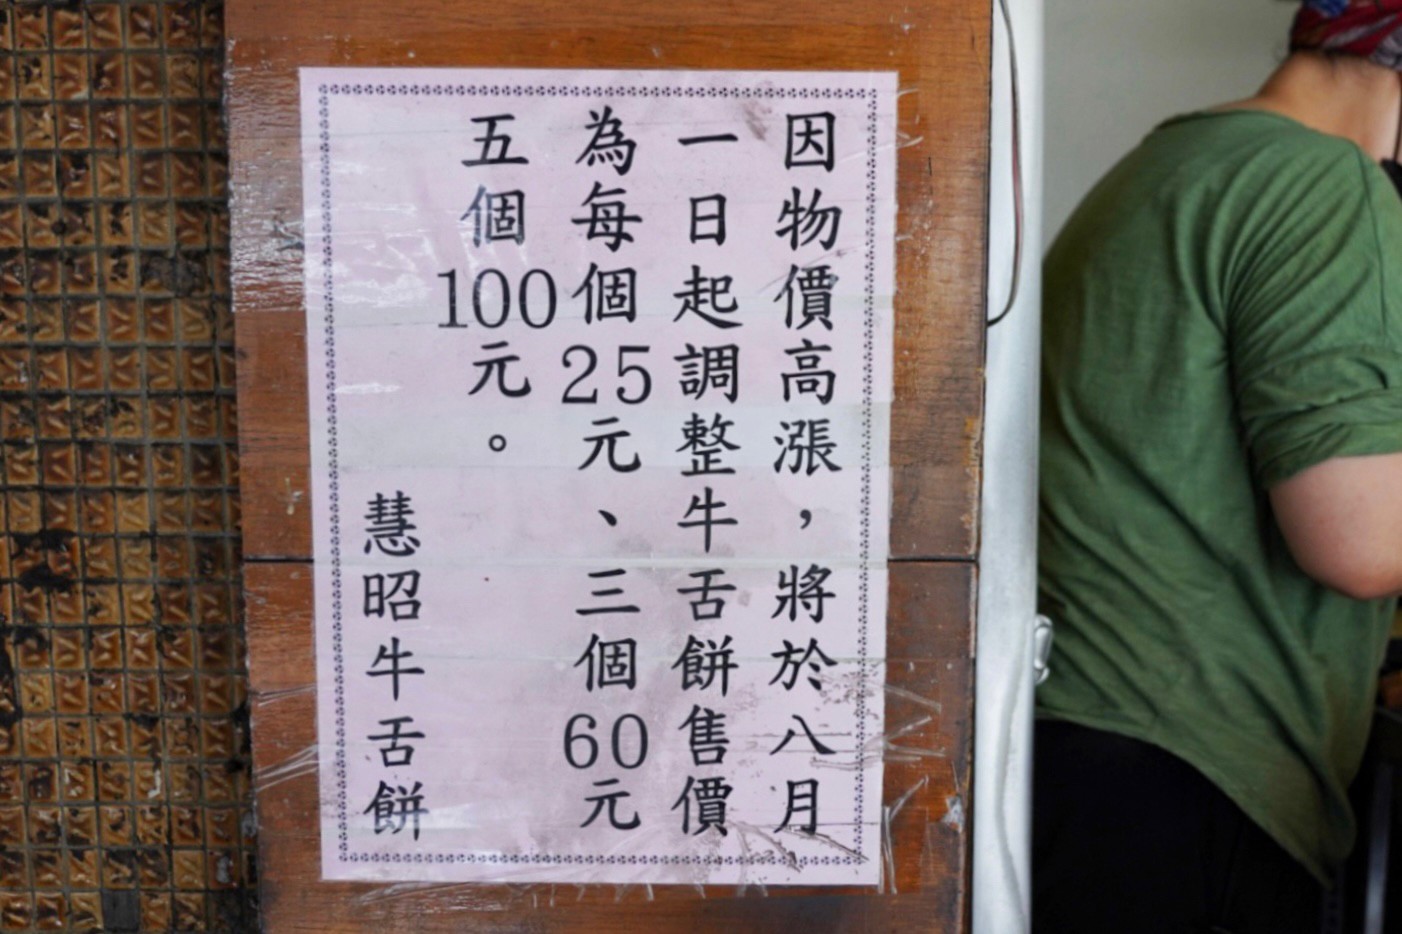 因物價高漲，將於八月
一日起調整牛舌餅售價
為每個25元、三個60元
五個100元。
慧昭牛舌餅